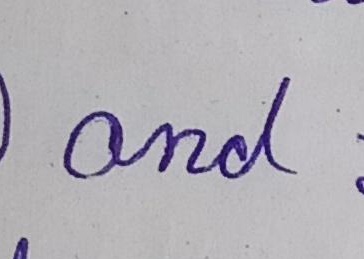 ) and :